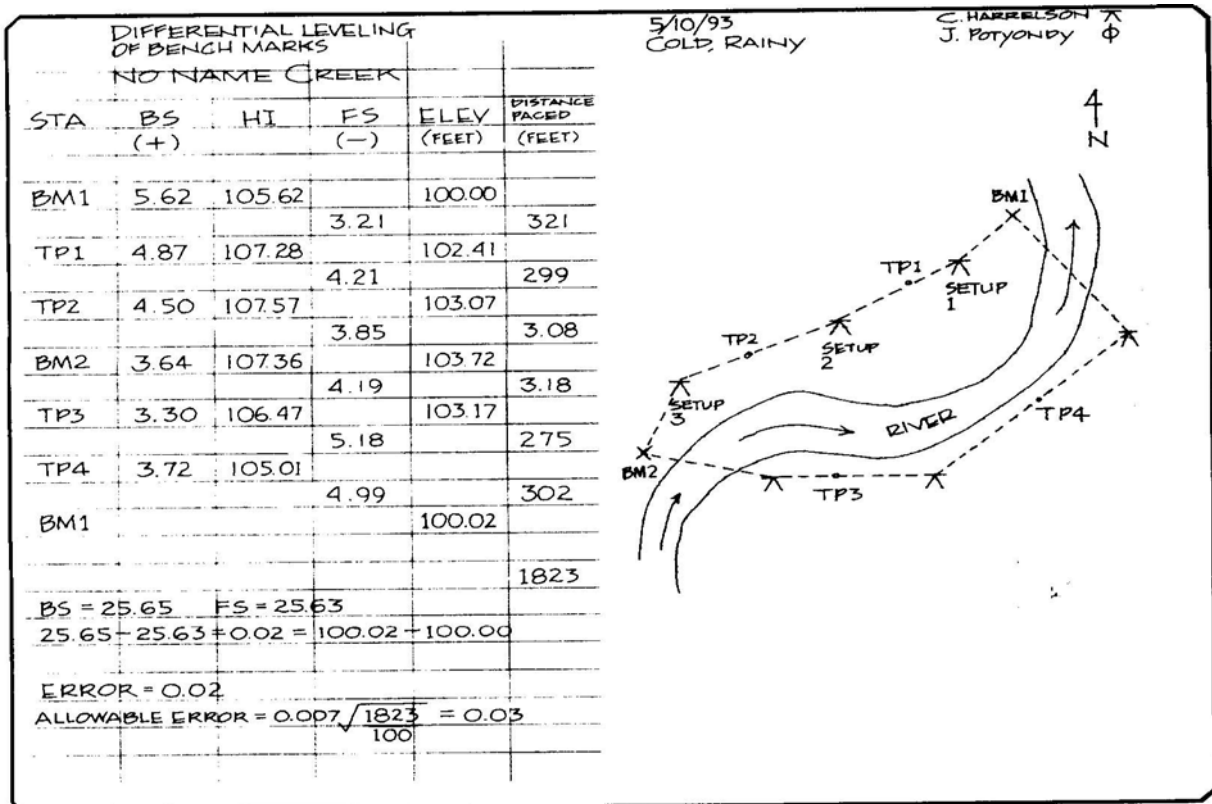 DIFFERENTIAL LEVELING
OF BENCH MARKS
NO NAME CREEK
STA BS HI FS ELEV DISTANCE PACED
(+) (—) (FEET) (FEET)
BM1 5.62 105.62 100.00
3.21 321
TP1 4.87 107.28 102.41
4.21 299
TP2 4.50 107.57 103.07
3.85 3.08
BM2 3.64 107.36 103.72
4.19 3.18
TP3 3.30 106.47 103.17
5.18 275
TP4 3.72 105.01
4.99 302
BM1 100.02
1823
BS = 25.65 FS = 25.63
25.65 - 25.63 = 0.02 = 100.02 - 100.00
ERROR = 0.02
ALLOWABLE ERROR = 0.007 √1823/100 = 0.03
5/10/93
COLD, RAINY
C. HARRELSON
J. POTYONDY
N
BM1
TP1
SETUP
1
TP2
SETUP
2
SETUP
3
BM2
RIVER
TP4
TP3